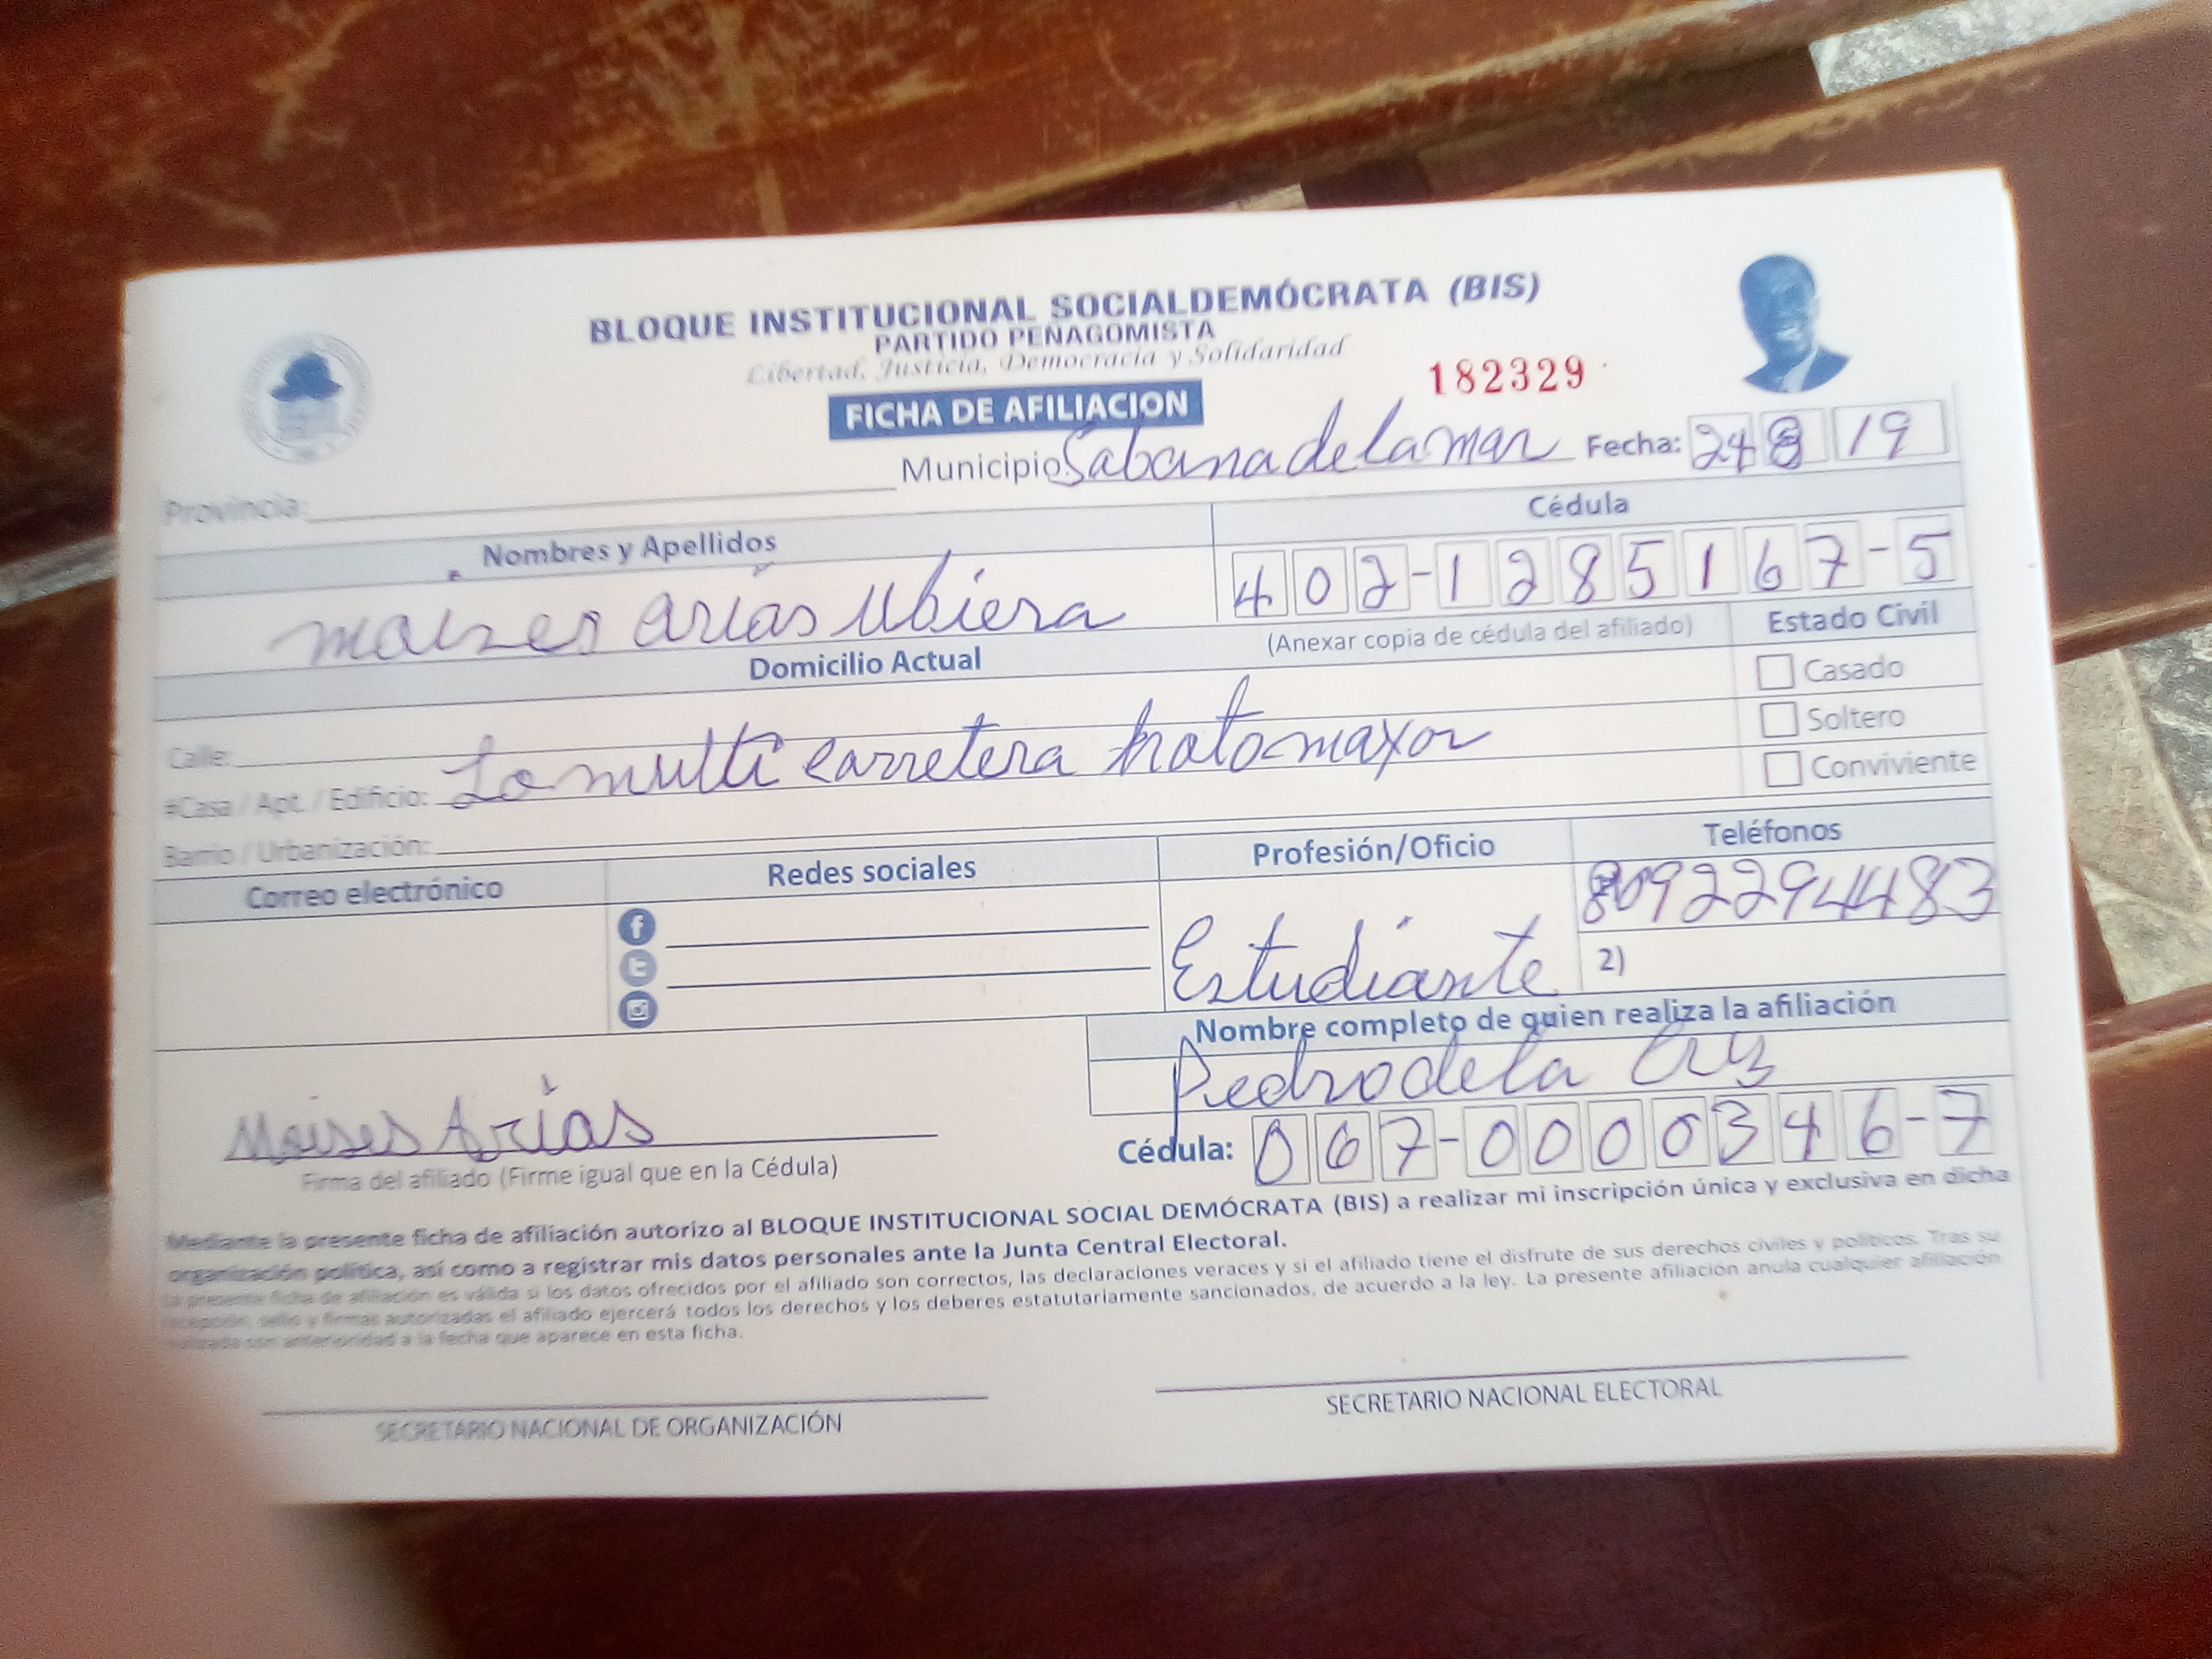 BLOQUE INSTITUCIONAL SOCIALDEMÓCRATA (BIS)
PARTIDO PEÑAGOMISTA
Libertad, Justicia, Democracia y Solidaridad
182329
FICHA DE AFILIACION
Provincia: Municipio Sabana de la mar Fecha: 24 8 19
Nombres y Apellidos Cédula
moises arias Ubiera 402-1285167-5
(Anexar copia de cédula del afiliado) Estado Civil
Domicilio Actual
Casado
Calle: Soltero
#Casa / Apt. / Edificio: La multi carretera hato maxor Conviviente
Barrio / Urbanización:
Correo electrónico Redes sociales Profesión/Oficio Teléfonos
8092294483
Estudiante 2)
Nombre completo de quien realiza la afiliación
Pedro de la Cruz
Moises Arias
Firma del afiliado (Firme igual que en la Cédula)
Cédula: 067-0000346-7
Mediante la presente ficha de afiliación autorizo al BLOQUE INSTITUCIONAL SOCIAL DEMÓCRATA (BIS) a realizar mi inscripción única y exclusiva en dicha
organización política, así como a registrar mis datos personales ante la Junta Central Electoral.
La presente ficha de afiliación es válida si los datos ofrecidos por el afiliado son correctos, las declaraciones veraces y si el afiliado tiene el disfrute de sus derechos civiles y políticos. Tras su
recepción, sello y firmas autorizadas el afiliado ejercerá todos los derechos y los deberes estatutariamente sancionados, de acuerdo a la ley. La presente afiliación anula cualquier afiliación
realizada con anterioridad a la fecha que aparece en esta ficha.
SECRETARIO NACIONAL DE ORGANIZACIÓN SECRETARIO NACIONAL ELECTORAL